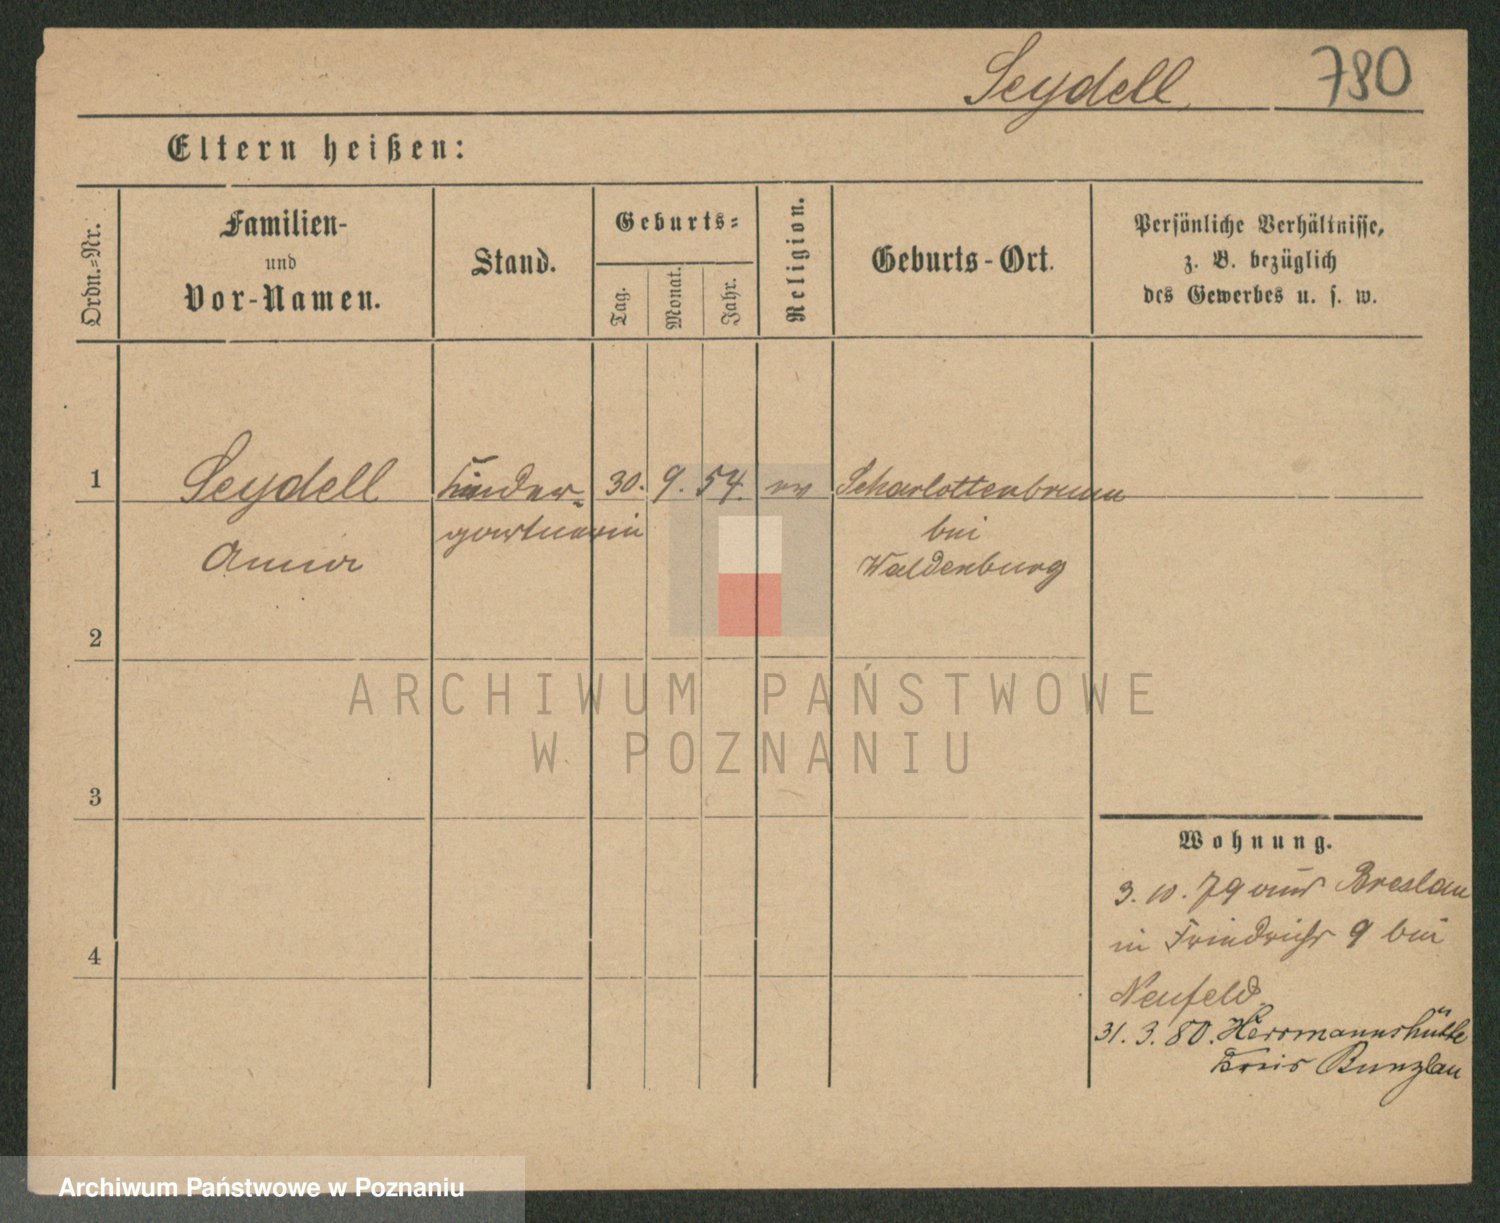 Seydell 780
Eltern heißen:
Ordn.=Nr.
Familien-
und
Vor-Namen.
Stand.
Geburts=
Tag.
Monat.
Jahr.
Religion.
Geburts-Ort.
Persönliche Verhältnisse,
z. B. bezüglich
des Gewerbes u. s. w.
1 Seydell Kinder= 30. 9. 54. ev Scharlottenbrunn
gärtnerin bei
Anna Waldenburg
2
ARCHIWUM PAŃSTWOWE
W POZNANIU
3
Wohnung.
3. 10. 79 aus Breslau
in Friedrichs 9 bei
4
Neufeld.
31. 3. 80. Herrmannshütte
Kreis Bunzlau
Archiwum Państwowe w Poznaniu